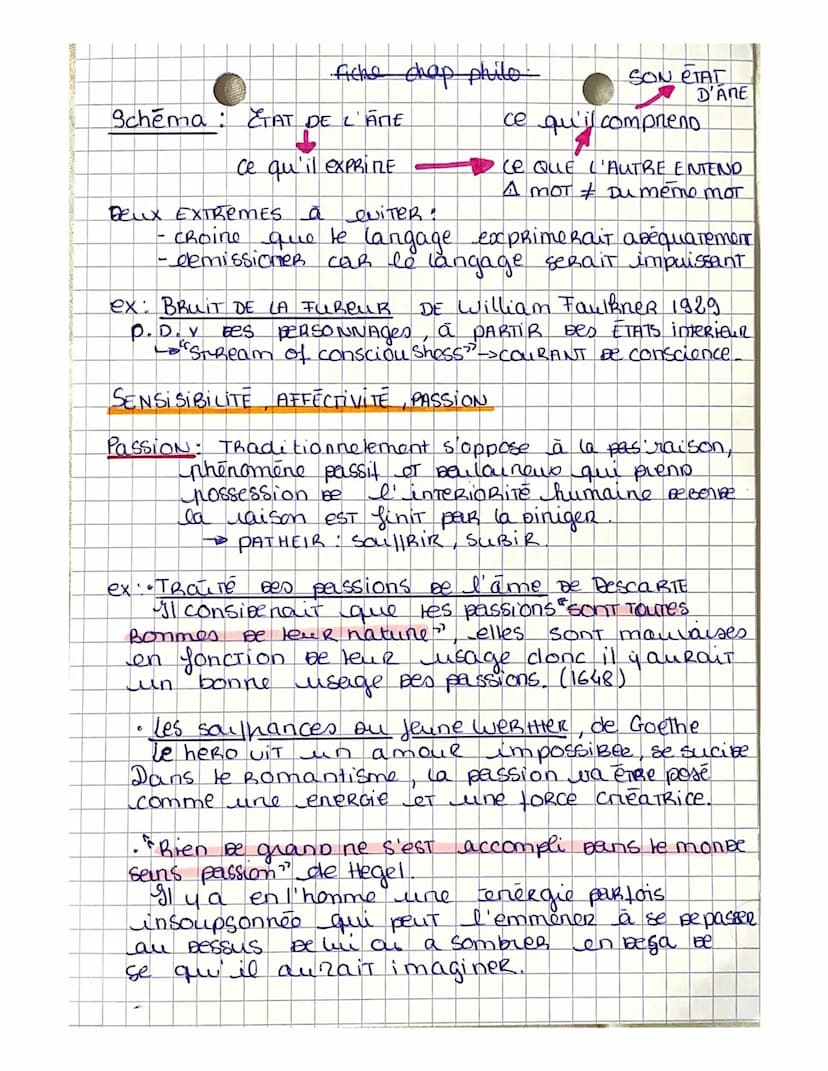 fiche chap philo
SON ÉTAT
D'ÂME
Schéma : ÉTAT DE L'ÂME ce qu'il comprend
ce qu'il EXPRIME → CE QUE L'AUTRE ENTEND
Δ MOT ≠ DU même MOT
DEUX EXTREMES à eviter :
- croire que le langage exprimerait adéquatement
- demissioner car le langage serait impuissant
ex : BRUIT DE LA FUREUR DE William Faulkner 1929
P.D.V DES PERSONNAGES, à PARTIR DES ÉTATS interieur
↳ "Stream of consciousness" → COURANT DE conscience
SENSISIBILITÉ, AFFÉCTIVITÉ, PASSION
PASSION : TRADitionnelement s'oppose à la pas raison,
phénomène passif et douloureux qui prend
possession DE l'interiorité humaine
la raison EST finit par la diriger.
→ PATHEIR : SOUFFRIR, SUBIR.
ex : • TRAITÉ DES passions DE l'âme DE DESCARTE
Il considerait que les passions "SONT TOUTES
BONNES DE leur nature", elles SONT mauvaises
en fonction DE leur usage donc il y aurait
un bonne usage DES passions. (1648)
• Les souffrances du jeune WERTHER, de Goethe
le hero vit un amour impossible, se sucide
Dans le Romantisme, la passion va être posé
comme une energie et une force créatrice.
• "Rien DE grand ne s'est accompli dans le monde
sans passion" de Hegel.
Il y a en l'homme une énérgie parfois
insoupsonnéo qui peut l'emmener à se depasser
au DESSUS DE lui ou a sombrer en deça DE
se qu'il aurait imaginer.
-